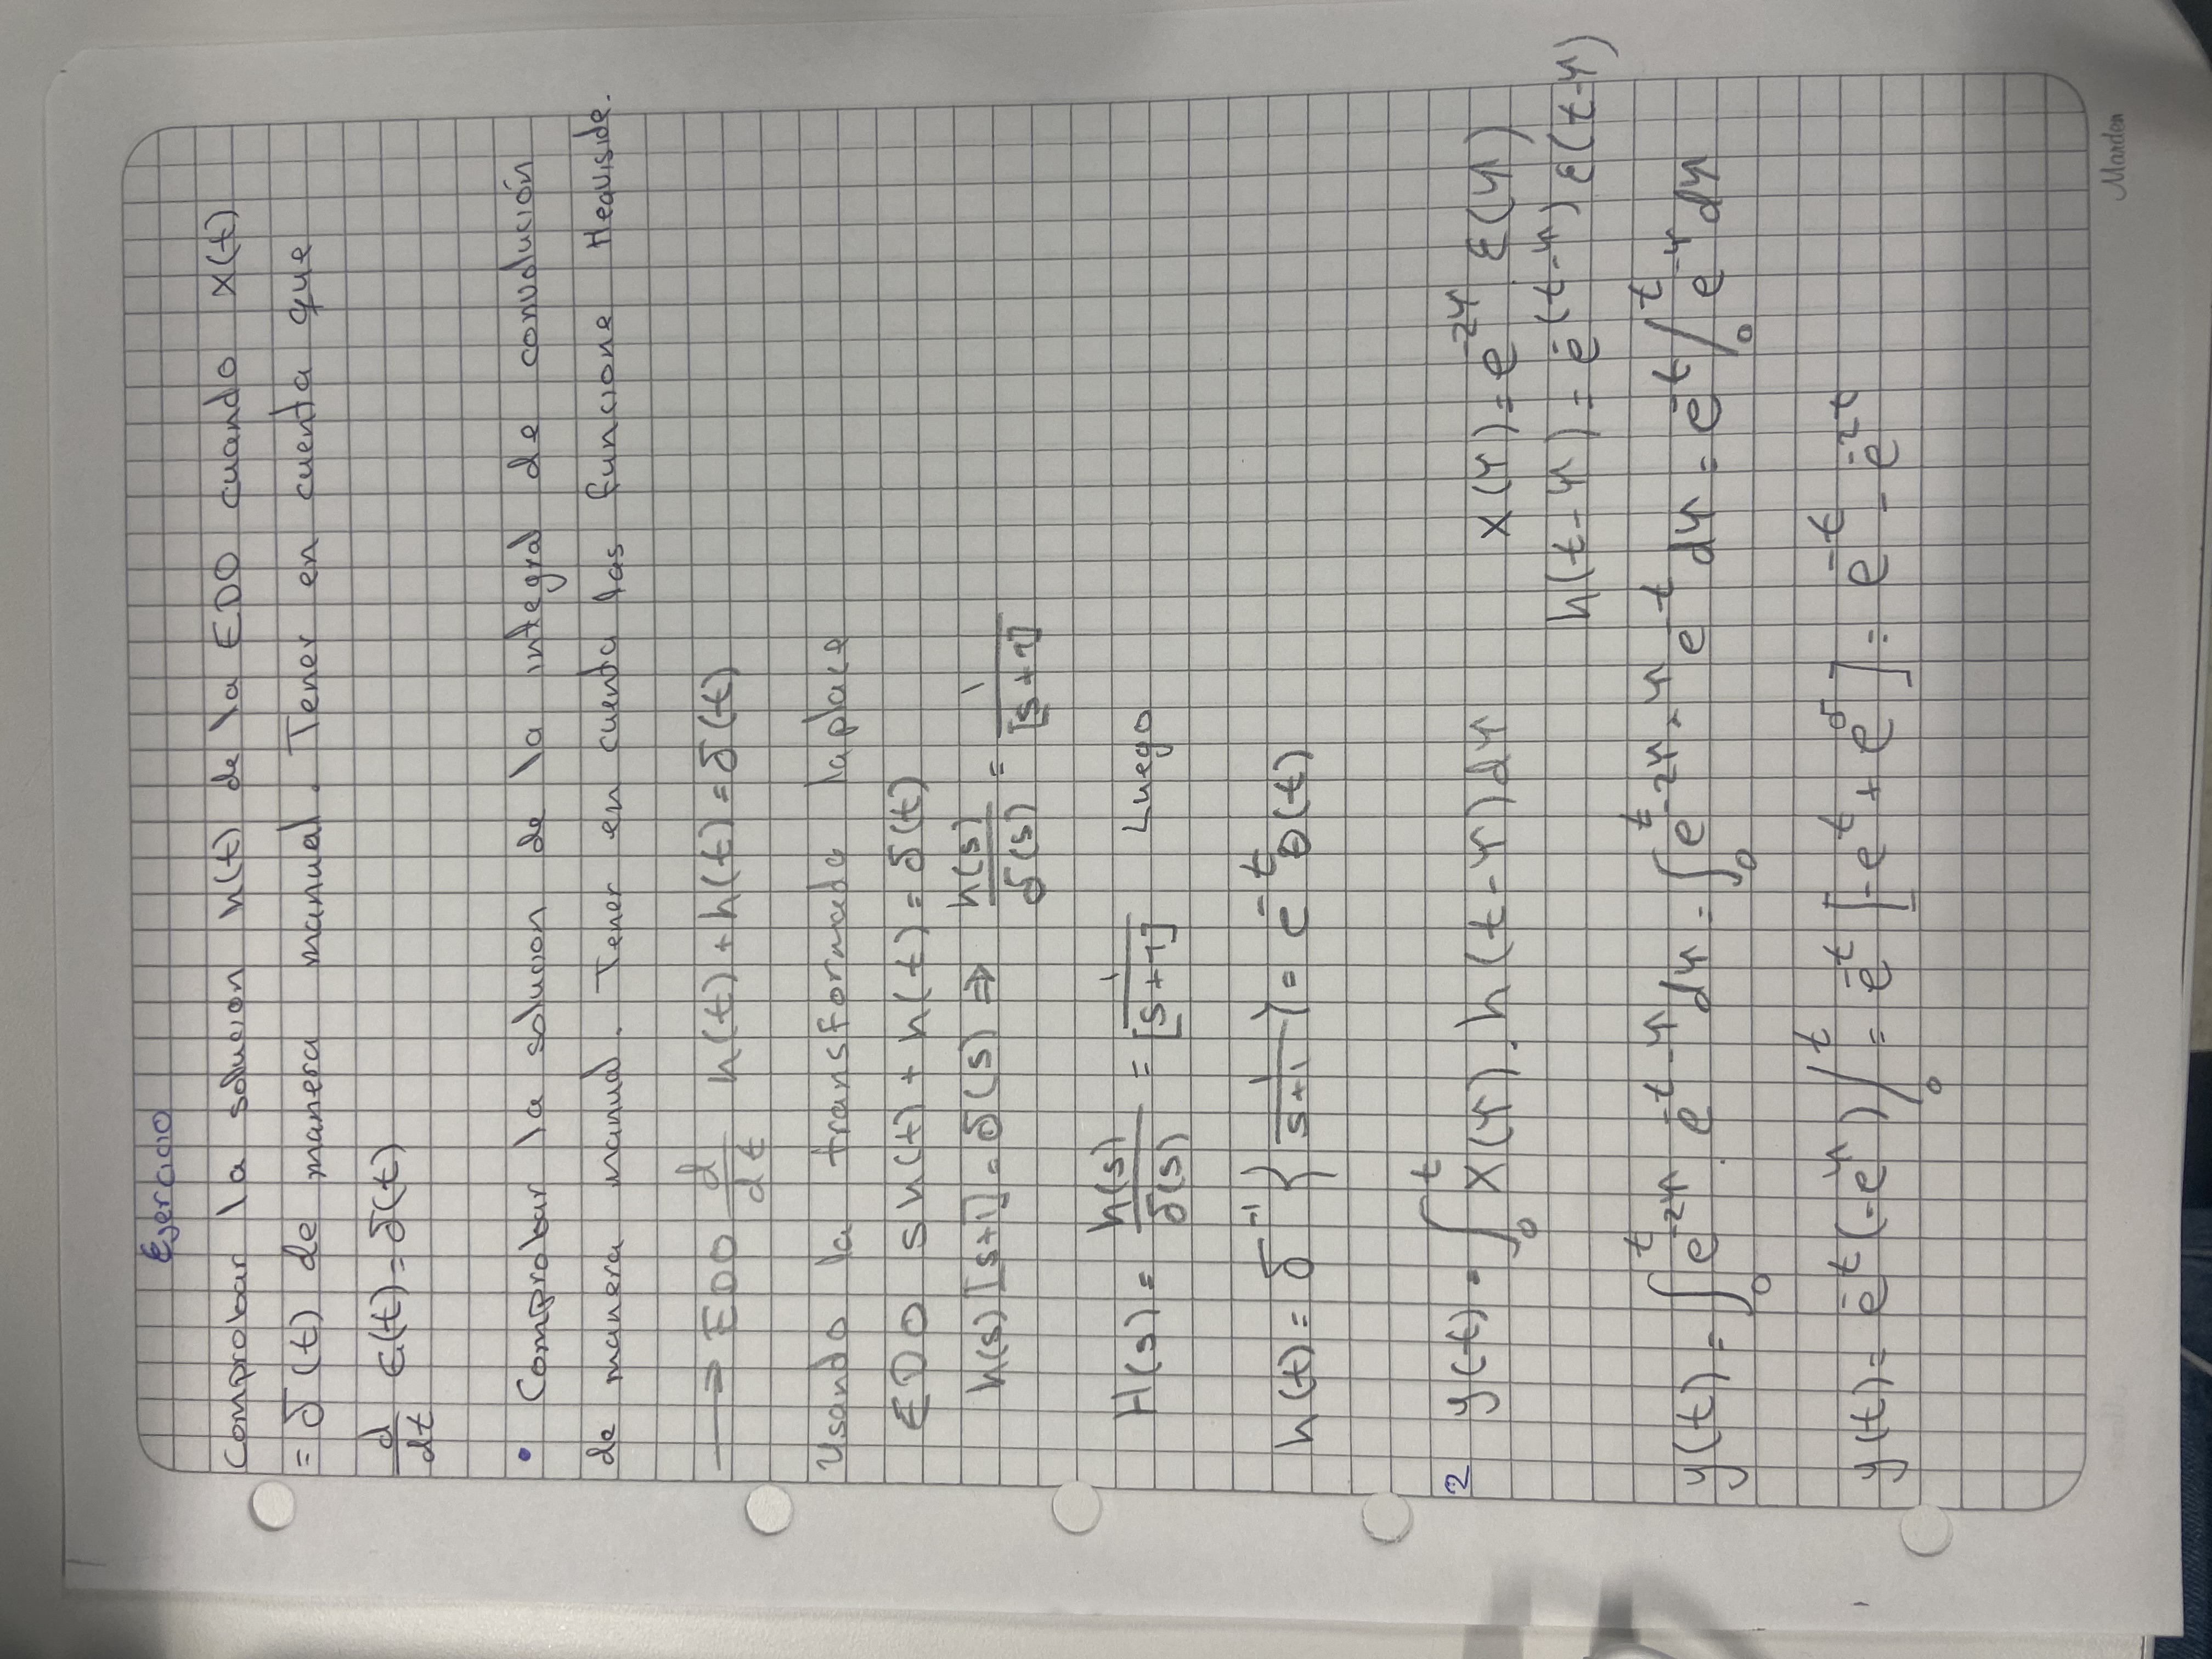 Ejercicio
Comprobar la solucion h(t) de la EDO cuando x(t)
= δ(t) de manera manual. Tener en cuenta que
d/dt ε(t) = δ(t)
• Comprobar la solucion de la integral de convolución
de manera manual. Tener en cuenta las funcione Heaviside.
→ EDO d/dt h(t) + h(t) = δ(t)
Usando la transformada laplace
EDO s h(t) + h(t) = δ(t)
h(s) [s+1] = δ(s) ⇒ h(s)/δ(s) = 1/[s+1]
H(s) = h(s)/δ(s) = 1/[s+1] Luego
h(t) = δ^-1 { 1/(s+1) } = e^-t δ(t)
2 y(t) = ∫_0^t x(τ) . h(t-τ) dτ x(τ) = e^-2τ . ε(τ)
h(t-τ) = e^-(t-τ) ε(t-τ)
y(t) = ∫_0^t e^-2τ . e^-t-τ dτ = ∫_0^t e^-2τ-τ e^-t dτ = e^-t ∫_0^t e^-τ dτ
y(t) = e^-t (-e^τ) /_0^t = e^-t [-e^t + e^0] = e^-t - e^-2t
Marden